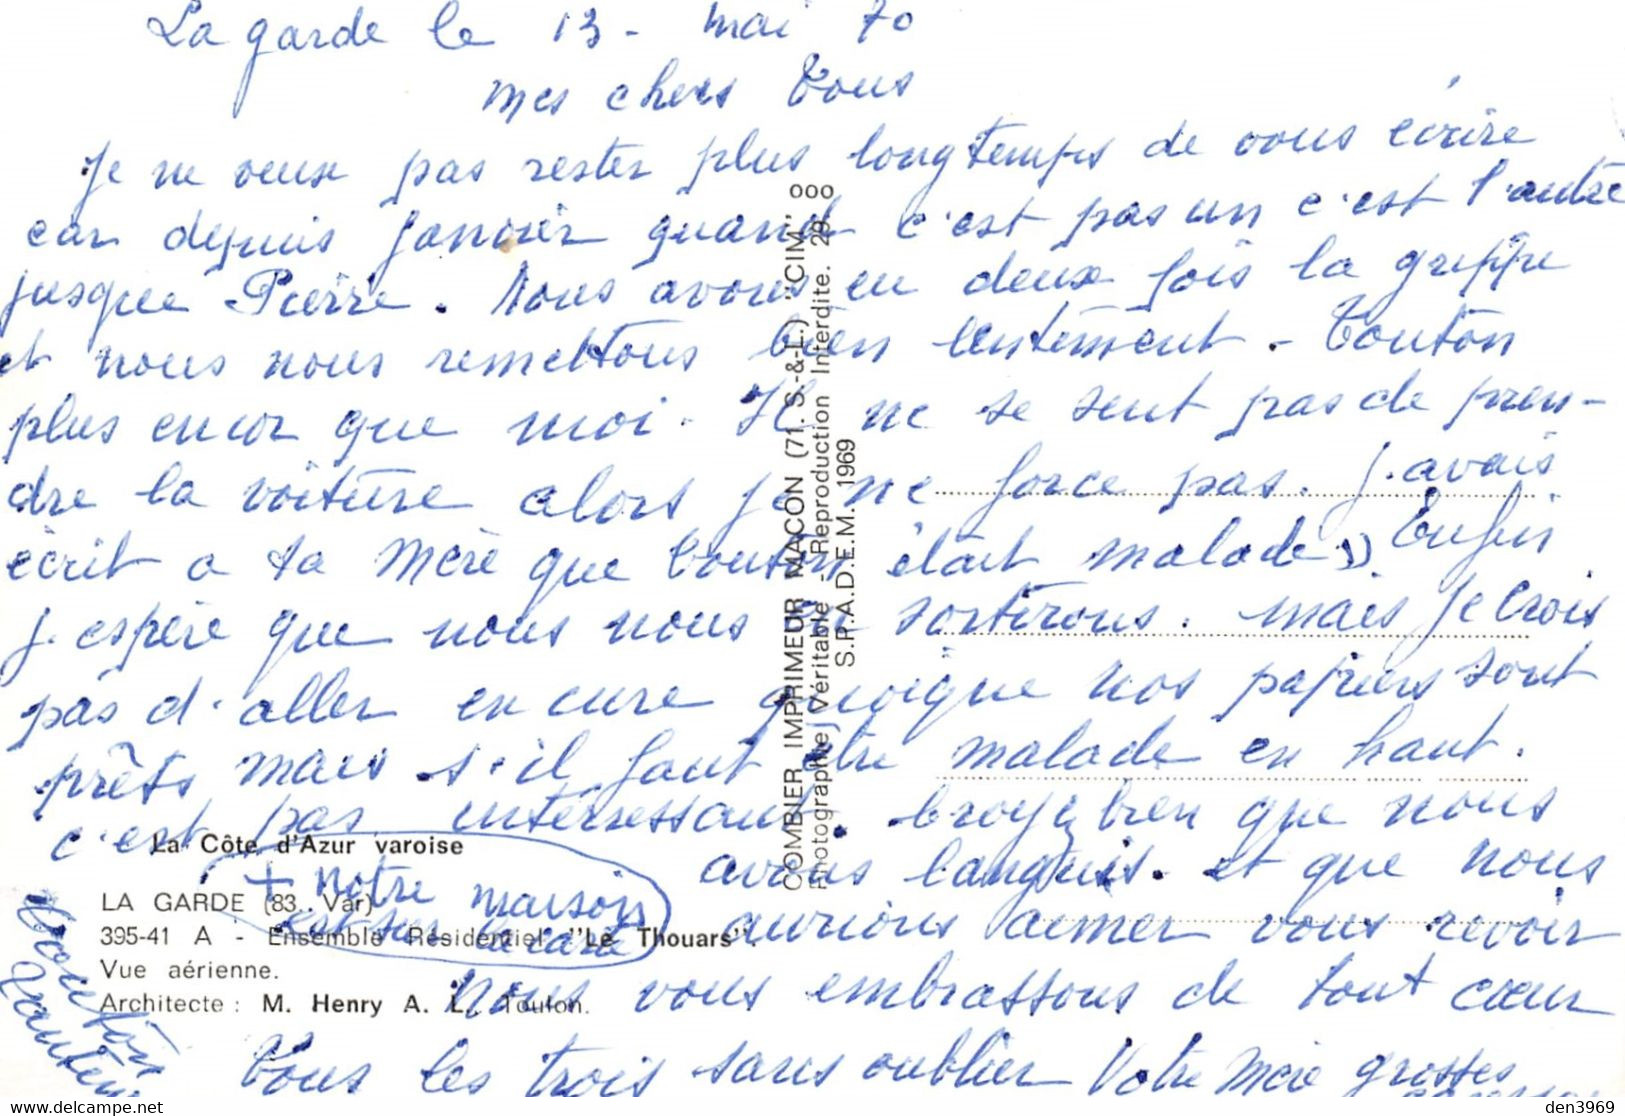 La garde le 13 - mai 70
mes chers Tous
Je ne veux pas rester plus longtemps de vous écrire
car depuis Janvier quand c'est pas un c'est l'autre
jusque Pierre. Nous avons eu deux fois la grippe
et nous nous remettons bien lentement - Tonton
plus encor que moi. Il ne se sent pas de pren-
dre la voiture alors je ne force pas. J'avais
écrit a ta Mère que Tonton était malade)) Enfin
j'espère que nous nous en sortirons. mais Je crois
pas d'aller en cure quoique nos papiers sont
prêts mais s'il faut être malade en haut.
c'est pas intérressant. Croyez bien que nous
avons languis. et que nous
aurions aimer vous revoir
Nous vous embrassons de tout cœur
Tous les trois sans oublier Votre Mère grosses
+ notre maison
est sur la carte
Tonton
La Côte d'Azur varoise
LA GARDE (83. Var)
395-41 A - Ensemble Résidentiel "Le Thouars".
Vue aérienne.
Architecte : M. Henry A. L. Toulon.
COMBIER IMPRIMEUR MACON (71. S.-&-L.) "CIM" ooo
Photographie Véritable - Reproduction Interdite. 29.
S.P.A.D.E.M. 1969
www.delcampe.net
den3969